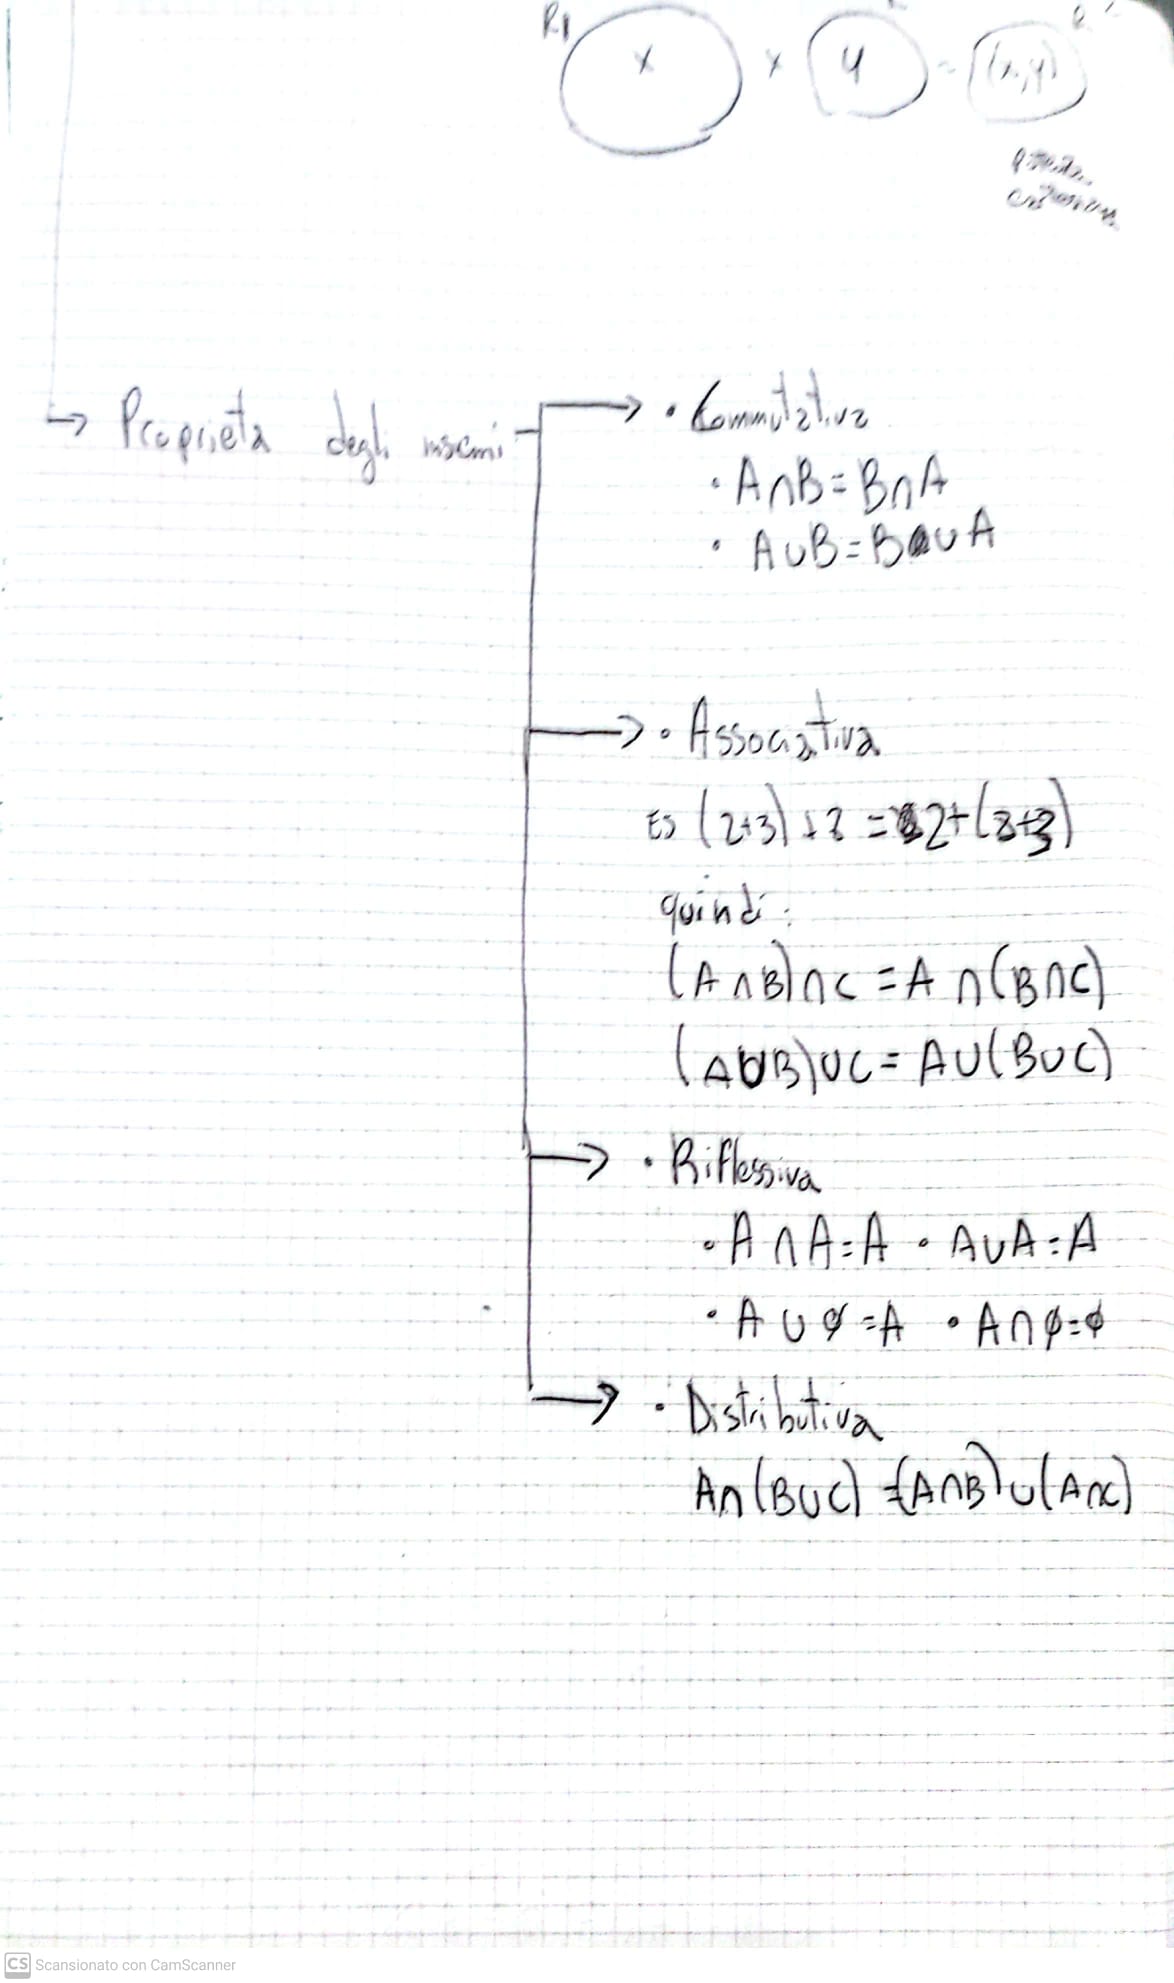 R1
x × y = (x,y)
→ Proprietà degli insiemi → • Commutativa
• A∩B=B∩A
• A∪B=B∪A
→ • Associativa
Es (2+3)+8 = 2+(8+3)
quindi:
(A∩B)∩C = A∩(B∩C)
(A∪B)∪C = A∪(B∪C)
→ • Riflessiva
• A∩A=A • A∪A=A
• A∪∅=A • A∩∅=∅
→ • Distributiva
A∩(B∪C) = (A∩B)∪(A∩C)
CS Scansionato con CamScanner